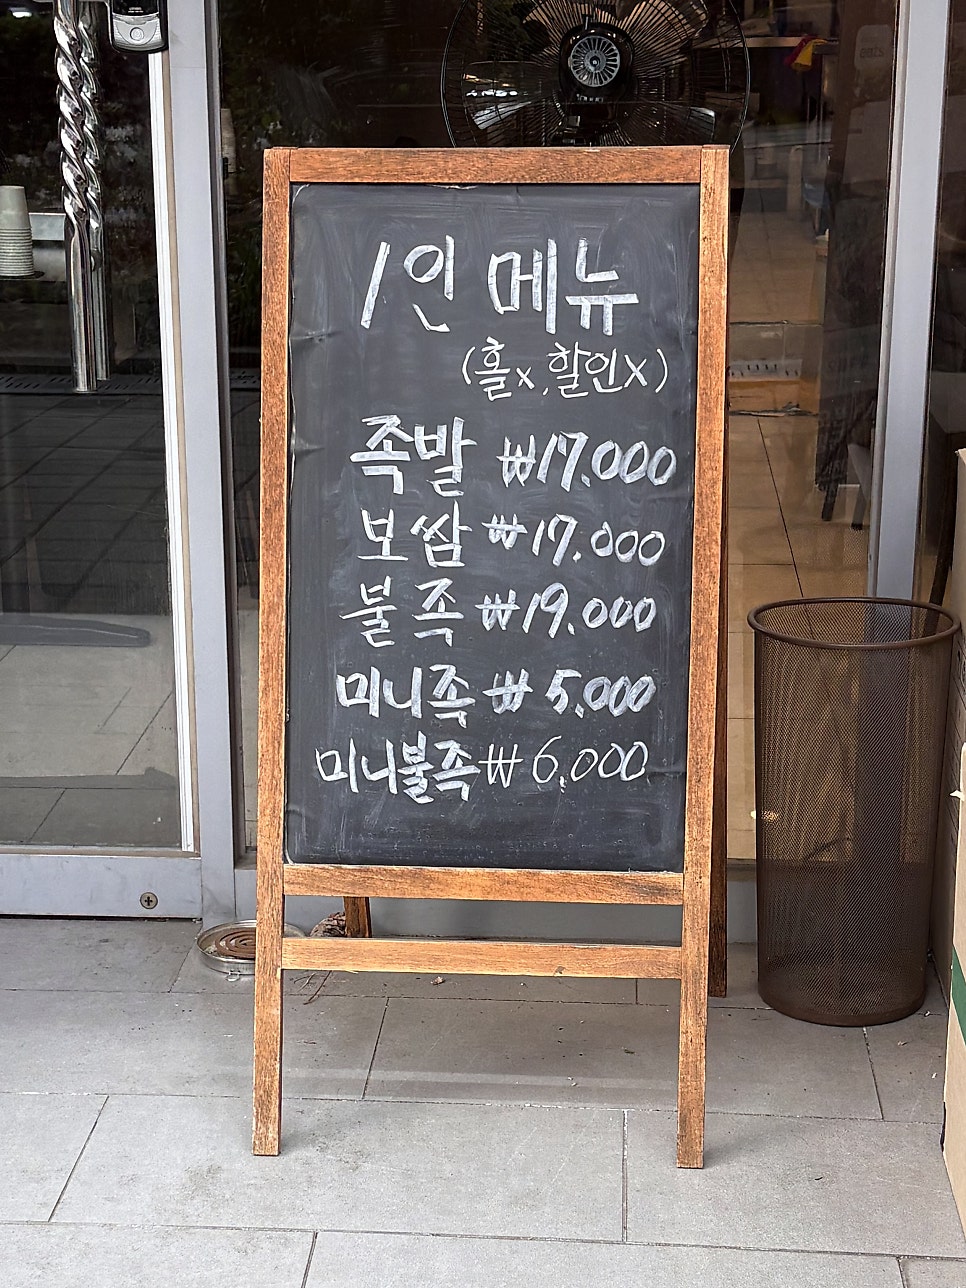 1인 메뉴
(홀x, 할인X)
족발 ₩17.000
보쌈 ₩17.000
불족 ₩19.000
미니족 ₩5.000
미니불족 ₩6.000